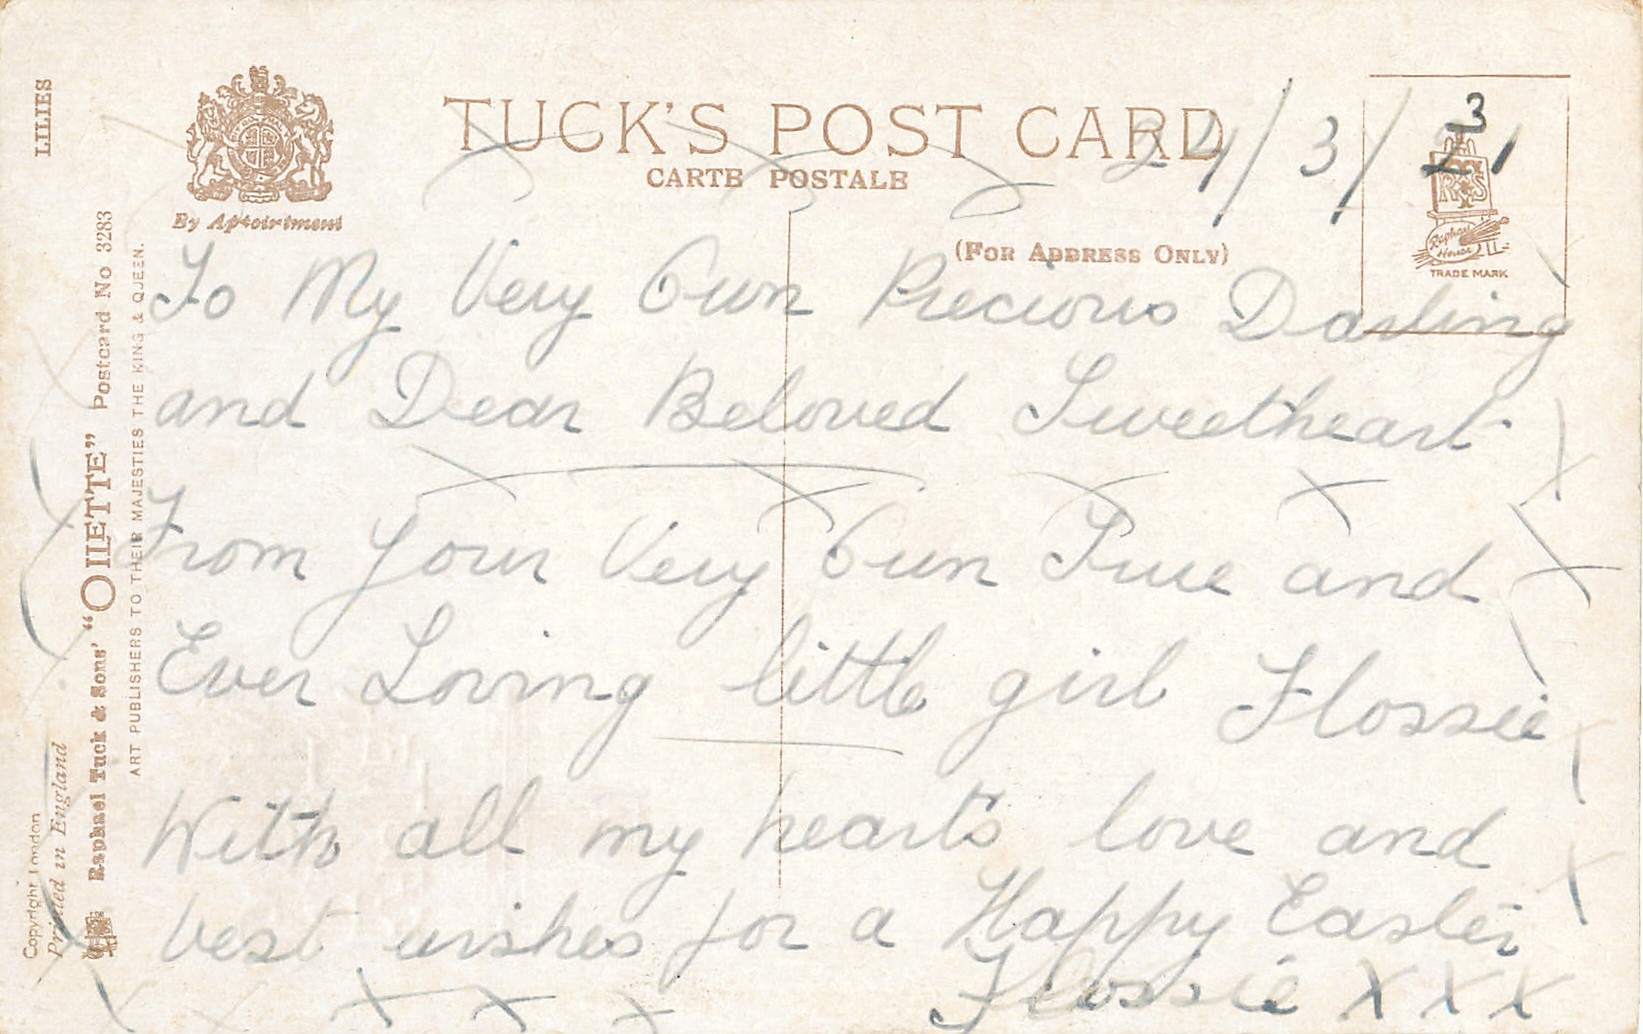 LILIES
By Appointment
TUCK'S POST CARD
CARTE POSTALE
(FOR ADDRESS ONLY)
24/3/21
3
R S
Raphael House
TRADE MARK
To My Very Own Precious Darling
and Dear Beloved Sweetheart
From Your Very Own True and
Ever Loving little girl Flossie
With all my heart's love and
best wishes for a Happy Easter
Flossie X X X
X X X
Raphael Tuck & Sons' "OILETTE" Postcard No 3283
ART PUBLISHERS TO THEIR MAJESTIES THE KING & QUEEN.
Copyright London
Printed in England